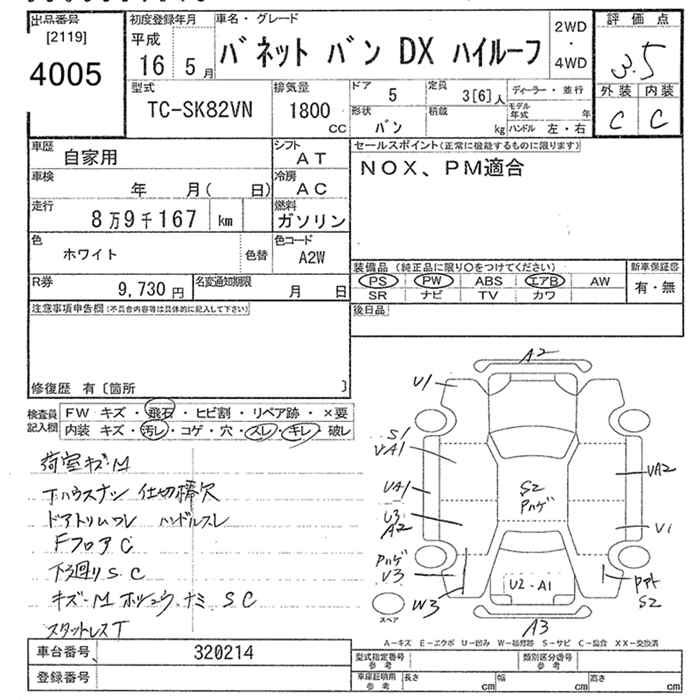 出品番号
[2119]
4005
初度登録年月
平成
16 5月
車名・グレード
バネット バン DX ハイルーフ
2WD
・
4WD
評価点
3.5
外装 内装
C C
型式
TC-SK82VN
排気量
1800
CC
ドア
5
定員
3[6]人
ディーラー・並行
形状
バン
積載
kg
モデル年式 年
ハンドル 左・右
車歴
自家用
シフト
AT
車検
年 月( 日)
冷房
AC
走行
8万9千167 km
燃料
ガソリン
色
ホワイト
色替
色コード
A2W
R券
9,730円
名変通知期限
月 日
セールスポイント(正常に機能するものに限ります)
NOX、PM適合
装備品(純正品に限り○をつけてください)
PS PW ABS エアB AW
SR ナビ TV カワ
新車保証書
有・無
後日品
注意事項申告欄(不具合内容等は具体的に記入して下さい)
修復歴 有〔箇所 〕
検査員
記入欄
FW キズ・飛石・ヒビ割・リペア跡・×要
内装 キズ・汚レ・コゲ・穴・スレ・キレ・破レ
荷室キズ・M
仕切棒欠
ドアトリムツレ ハンドルスレ
FフロアC
下廻りS.C
キズ・M S C
スタットレスT
A2
U1
S1
VA1
VA1
U3
A2
Pハゲ
V3
W3
S2
Pハゲ
U2-A1
VA2
V1
S2
A3
スペア
A-キズ E-エクボ U-凹み W-補修跡 S-サビ C-腐食 XX-交換済
車台番号
320214
登録番号
型式指定番号
参考
類別区分番号
参考
車庫証明用
参考
長さ cm
幅 cm
高さ cm